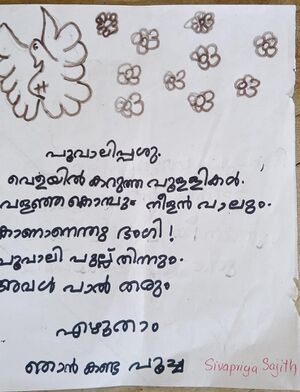 പൂവാലിപ്പശു.
വെള്ളയിൽ കറുത്ത പുള്ളികൾ.
വളഞ്ഞ കൊമ്പും നീളൻ വാലും.
കാണാനെന്തു ഭംഗി!
പൂവാലി പുല്ല് തിന്നും.
അവൾ പാൽ തരും
എഴുതാം
ഞാൻ കണ്ട പൂച്ച
Sivapriya Sajith